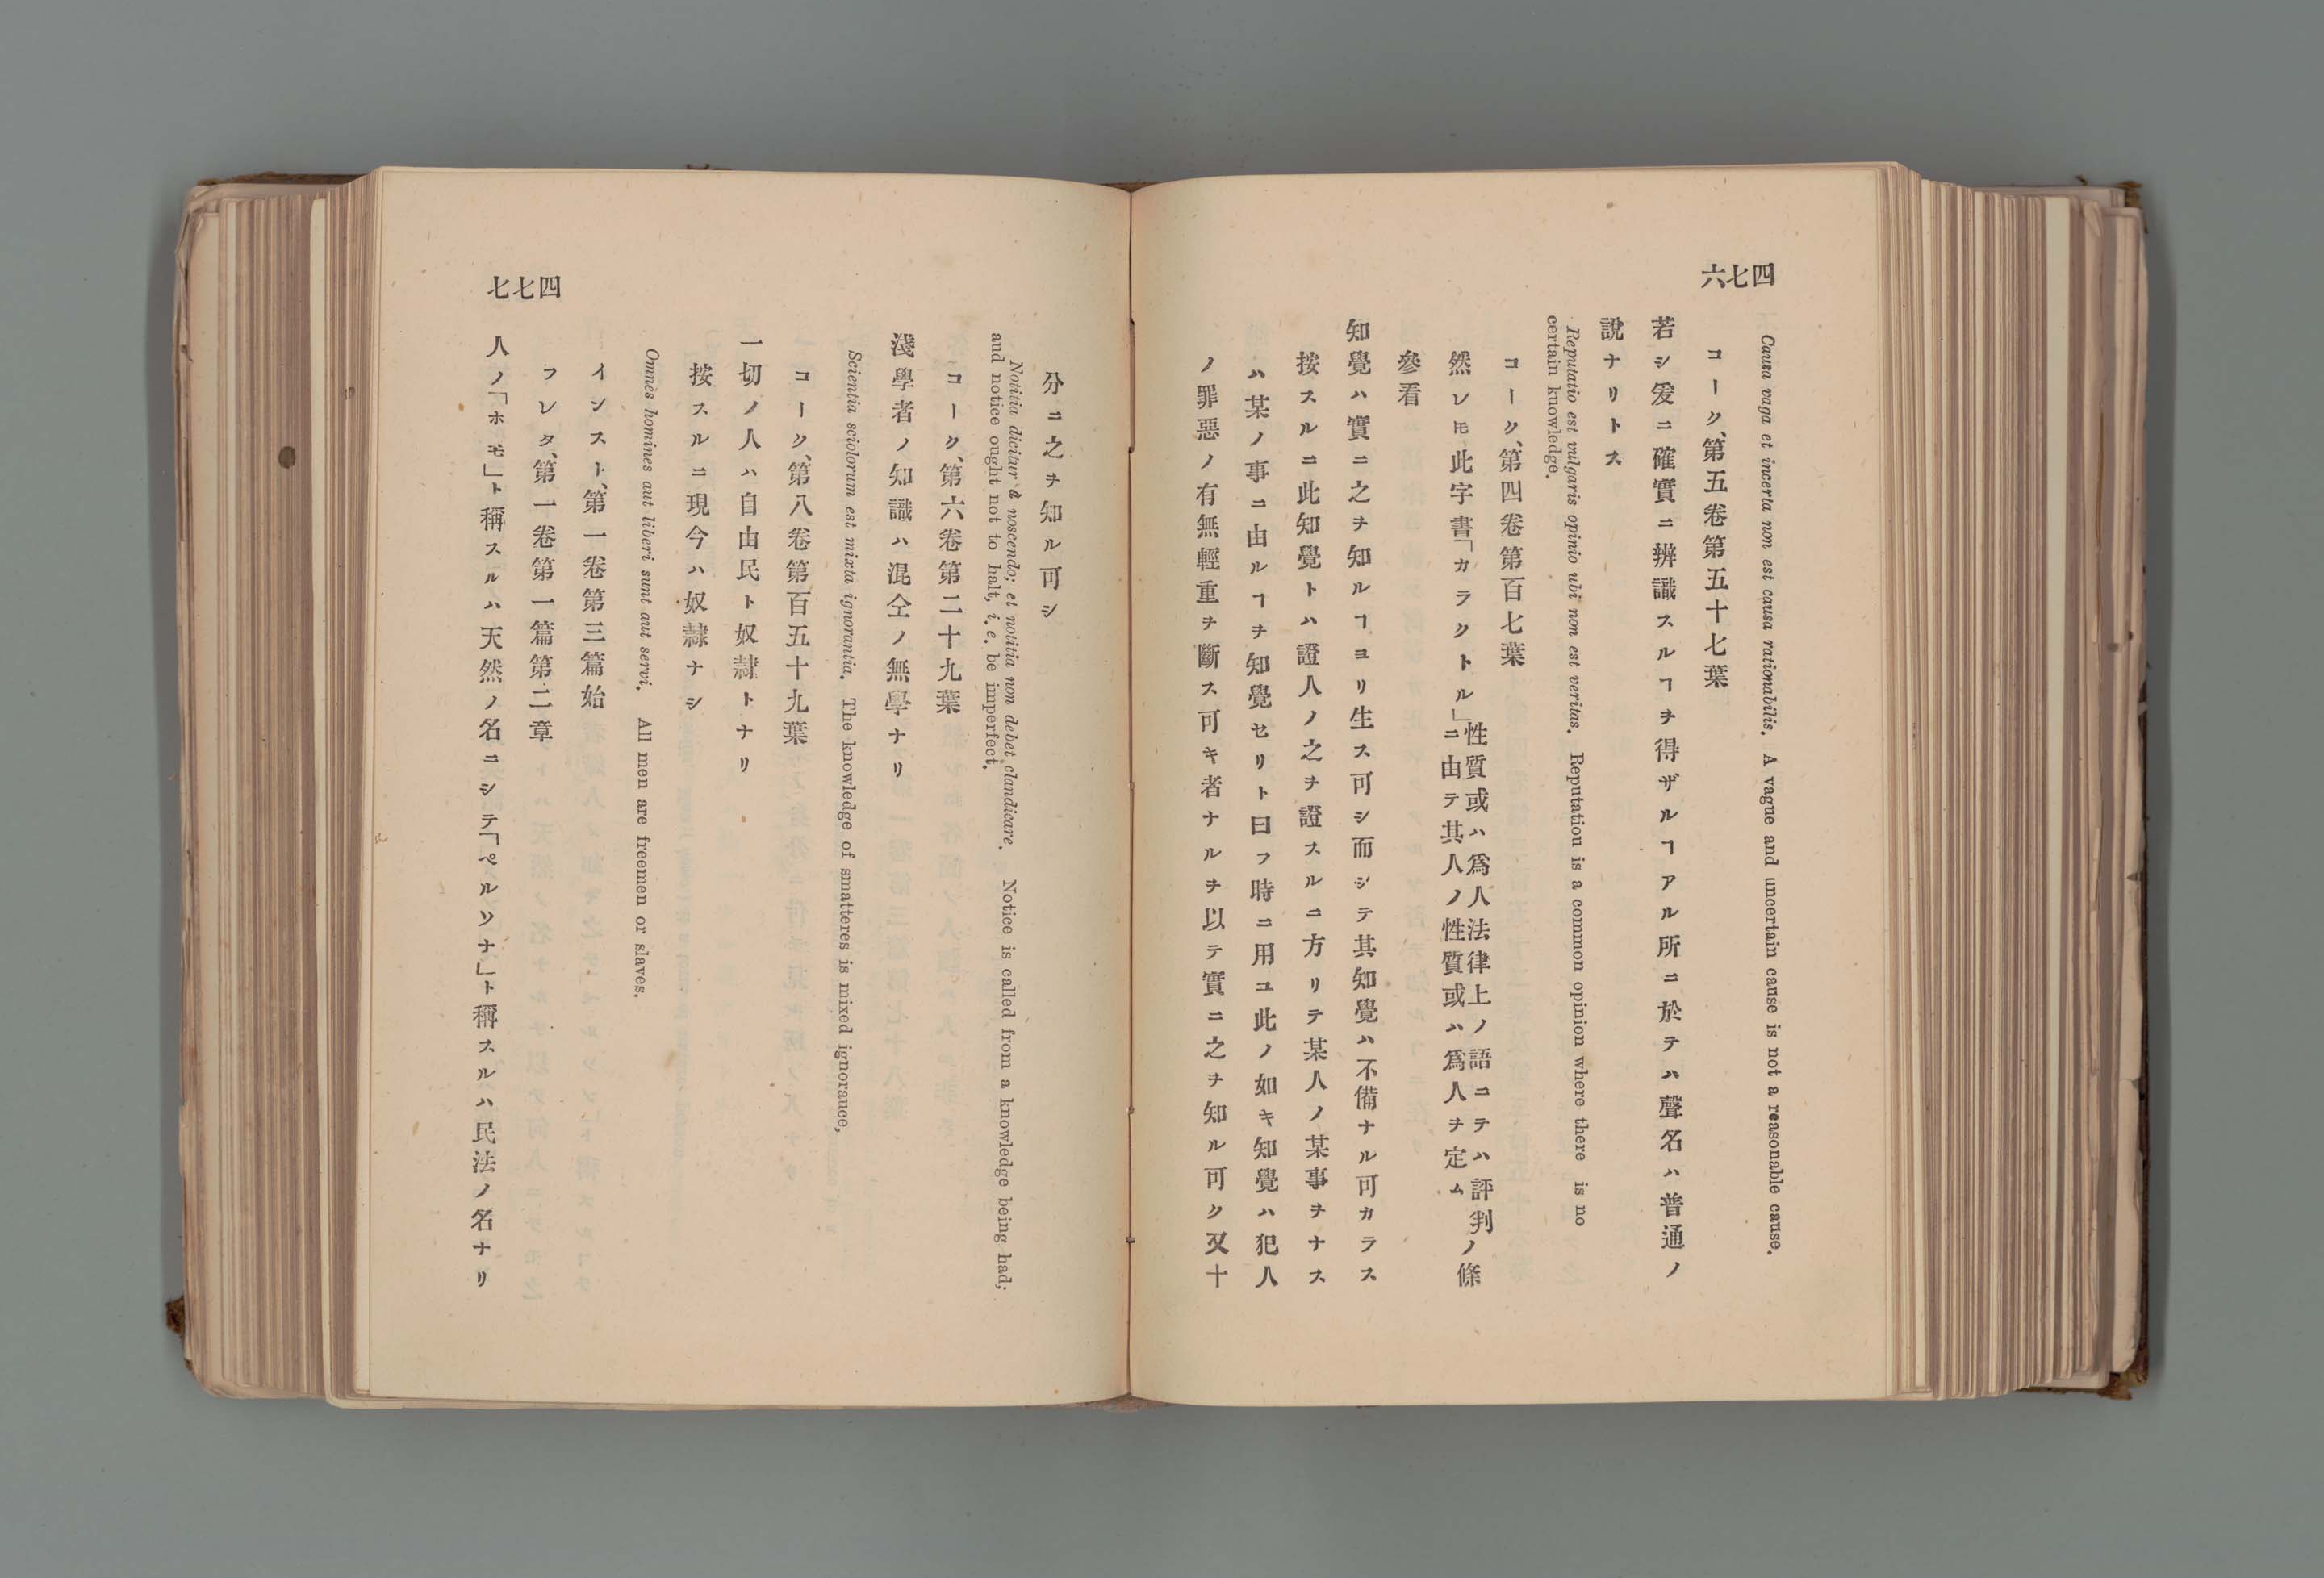 四七六
Causa vaga et incerta non est causa rationabilis. A vague and uncertain cause is not a reasonable cause.
コーク、第五卷第五十七葉
若シ爰ニ確實ニ辨識スルヿヲ得ザルヿアル所ニ於テハ聲名ハ普通ノ
說ナリトス
Reputatio est vulgaris opinio ubi non est veritas. Reputatiou is a common opinion where there is no
certain kuowledge.
コーク、第四卷第百七葉
然レ𪜈此字書「カラクトル」性質或ハ爲人法律上ノ語ニテハ評判ニ由テ其人ノ性質或ハ爲人ヲ定ムノ條
參看
知覺ハ實ニ之ヲ知ルヿヨリ生ス可シ而シテ其知覺ハ不備ナル可カラス
按スルニ此知覺トハ證人ノ之ヲ證スルニ方リテ某人ノ某事ヲナス
ハ某ノ事ニ由ルヿヲ知覺セリト曰フ時ニ用ユ此ノ如キ知覺ハ犯人
ノ罪惡ノ有無輕重ヲ斷ス可キ者ナルヲ以テ實ニ之ヲ知ル可ク又十
四七七
分ニ之ヲ知ル可シ
Notitia dicitur à noscendo; et notitia non debet clandicare. Notice is called from a knowledge being had;
aud notice ought not to halt, i. e. be imperfect.
コーク、第六卷第二十九葉
淺學者ノ知識ハ混仝ノ無學ナリ
Scientia sciolorum est mixta ignorantia. The knowledge of smatteres is mixed ignorauce,
コーク、第八卷第百五十九葉
一切ノ人ハ自由民ト奴隷トナリ
按スルニ現今ハ奴隷ナシ
Omnès homines aut liberi sunt aut servi. All men are freemen or slaves.
インスト、第一卷第三篇始
フレタ、第一卷第一篇第二章
人ノ「ホモ」ト稱スルハ天然ノ名ニシテ「ペルソナ」ト稱スルハ民法ノ名ナリ